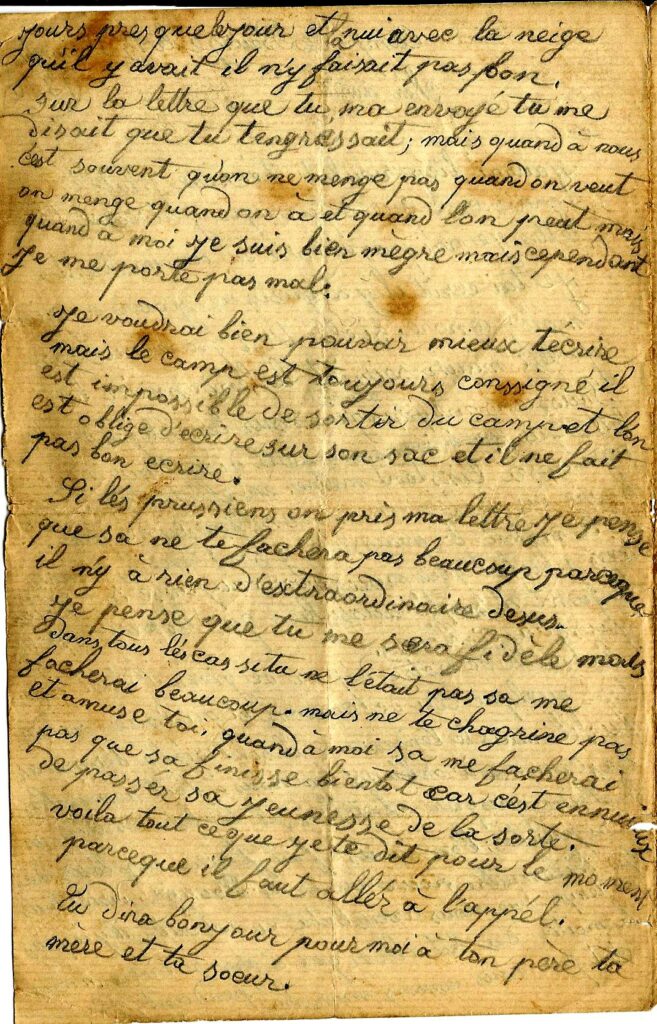 jours presque le jour et la nui avec la neige
qu'il y avait il n'y faisait pas bon.
sur la lettre que tu ma envoyé tu me
disait que tu tengressait; mais quand à nous
c'est souvent qu'on ne menge pas quand on veut
on menge quand on à et quand l'on peut mais
quand à moi je suis bien mègre mais cependant
je me porte pas mal.
je voudrai bien pouvoir mieux t'écrire
mais le camp est toujours conssigné il
est impossible de sortir du camp et l'on
est obligé d'ecrire sur son sac et il ne fait
pas bon ecrire.
Si lés prussiens on pris ma lettre je pense
que sa ne te fachera pas beaucoup parceque
il n'y à rien d'extraordinaire desus.
je pense que tu me sera fidèle mais
dans tous léscas si tu ne l'était pas sa me
facherai beaucoup. mais ne te chagrine pas
et amuse toi, quand à moi sa me facherai
pas que sa finisse bientot car c'est ennuieux
de passér sa jeunesse de la sorte.
voila tout ce que je te dit pour le moment
parceque il faut allér à l'appél.
Tu dira bonjour pour moi à ton père ta
mère et ta soeur.